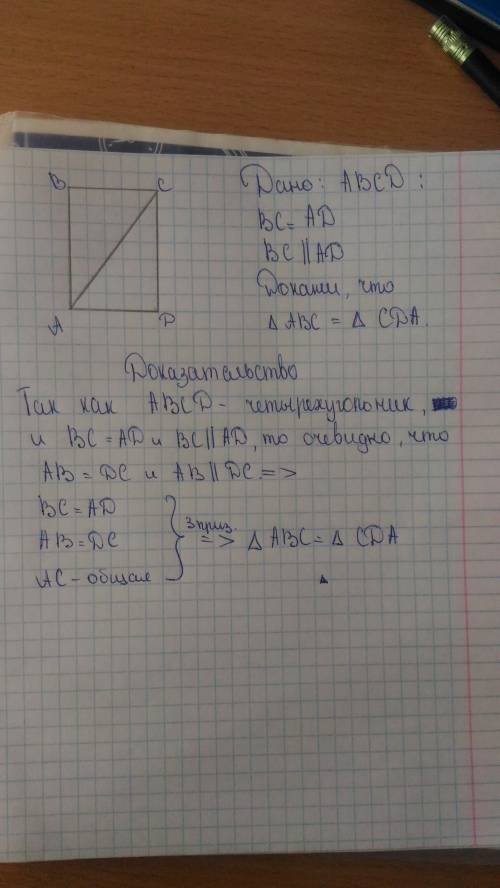 B
C
A
D
Дано: ABCD:
BC = AD
BC || AD
Докажи, что
Δ ABC = Δ CDA.
Доказательство
Так как ABCD - четырехугольник,
и BC = AD и BC || AD, то очевидно, что
AB = DC и AB || DC =>
BC = AD
AB = DC
AC - общая
3 приз.
=> Δ ABC = Δ CDA